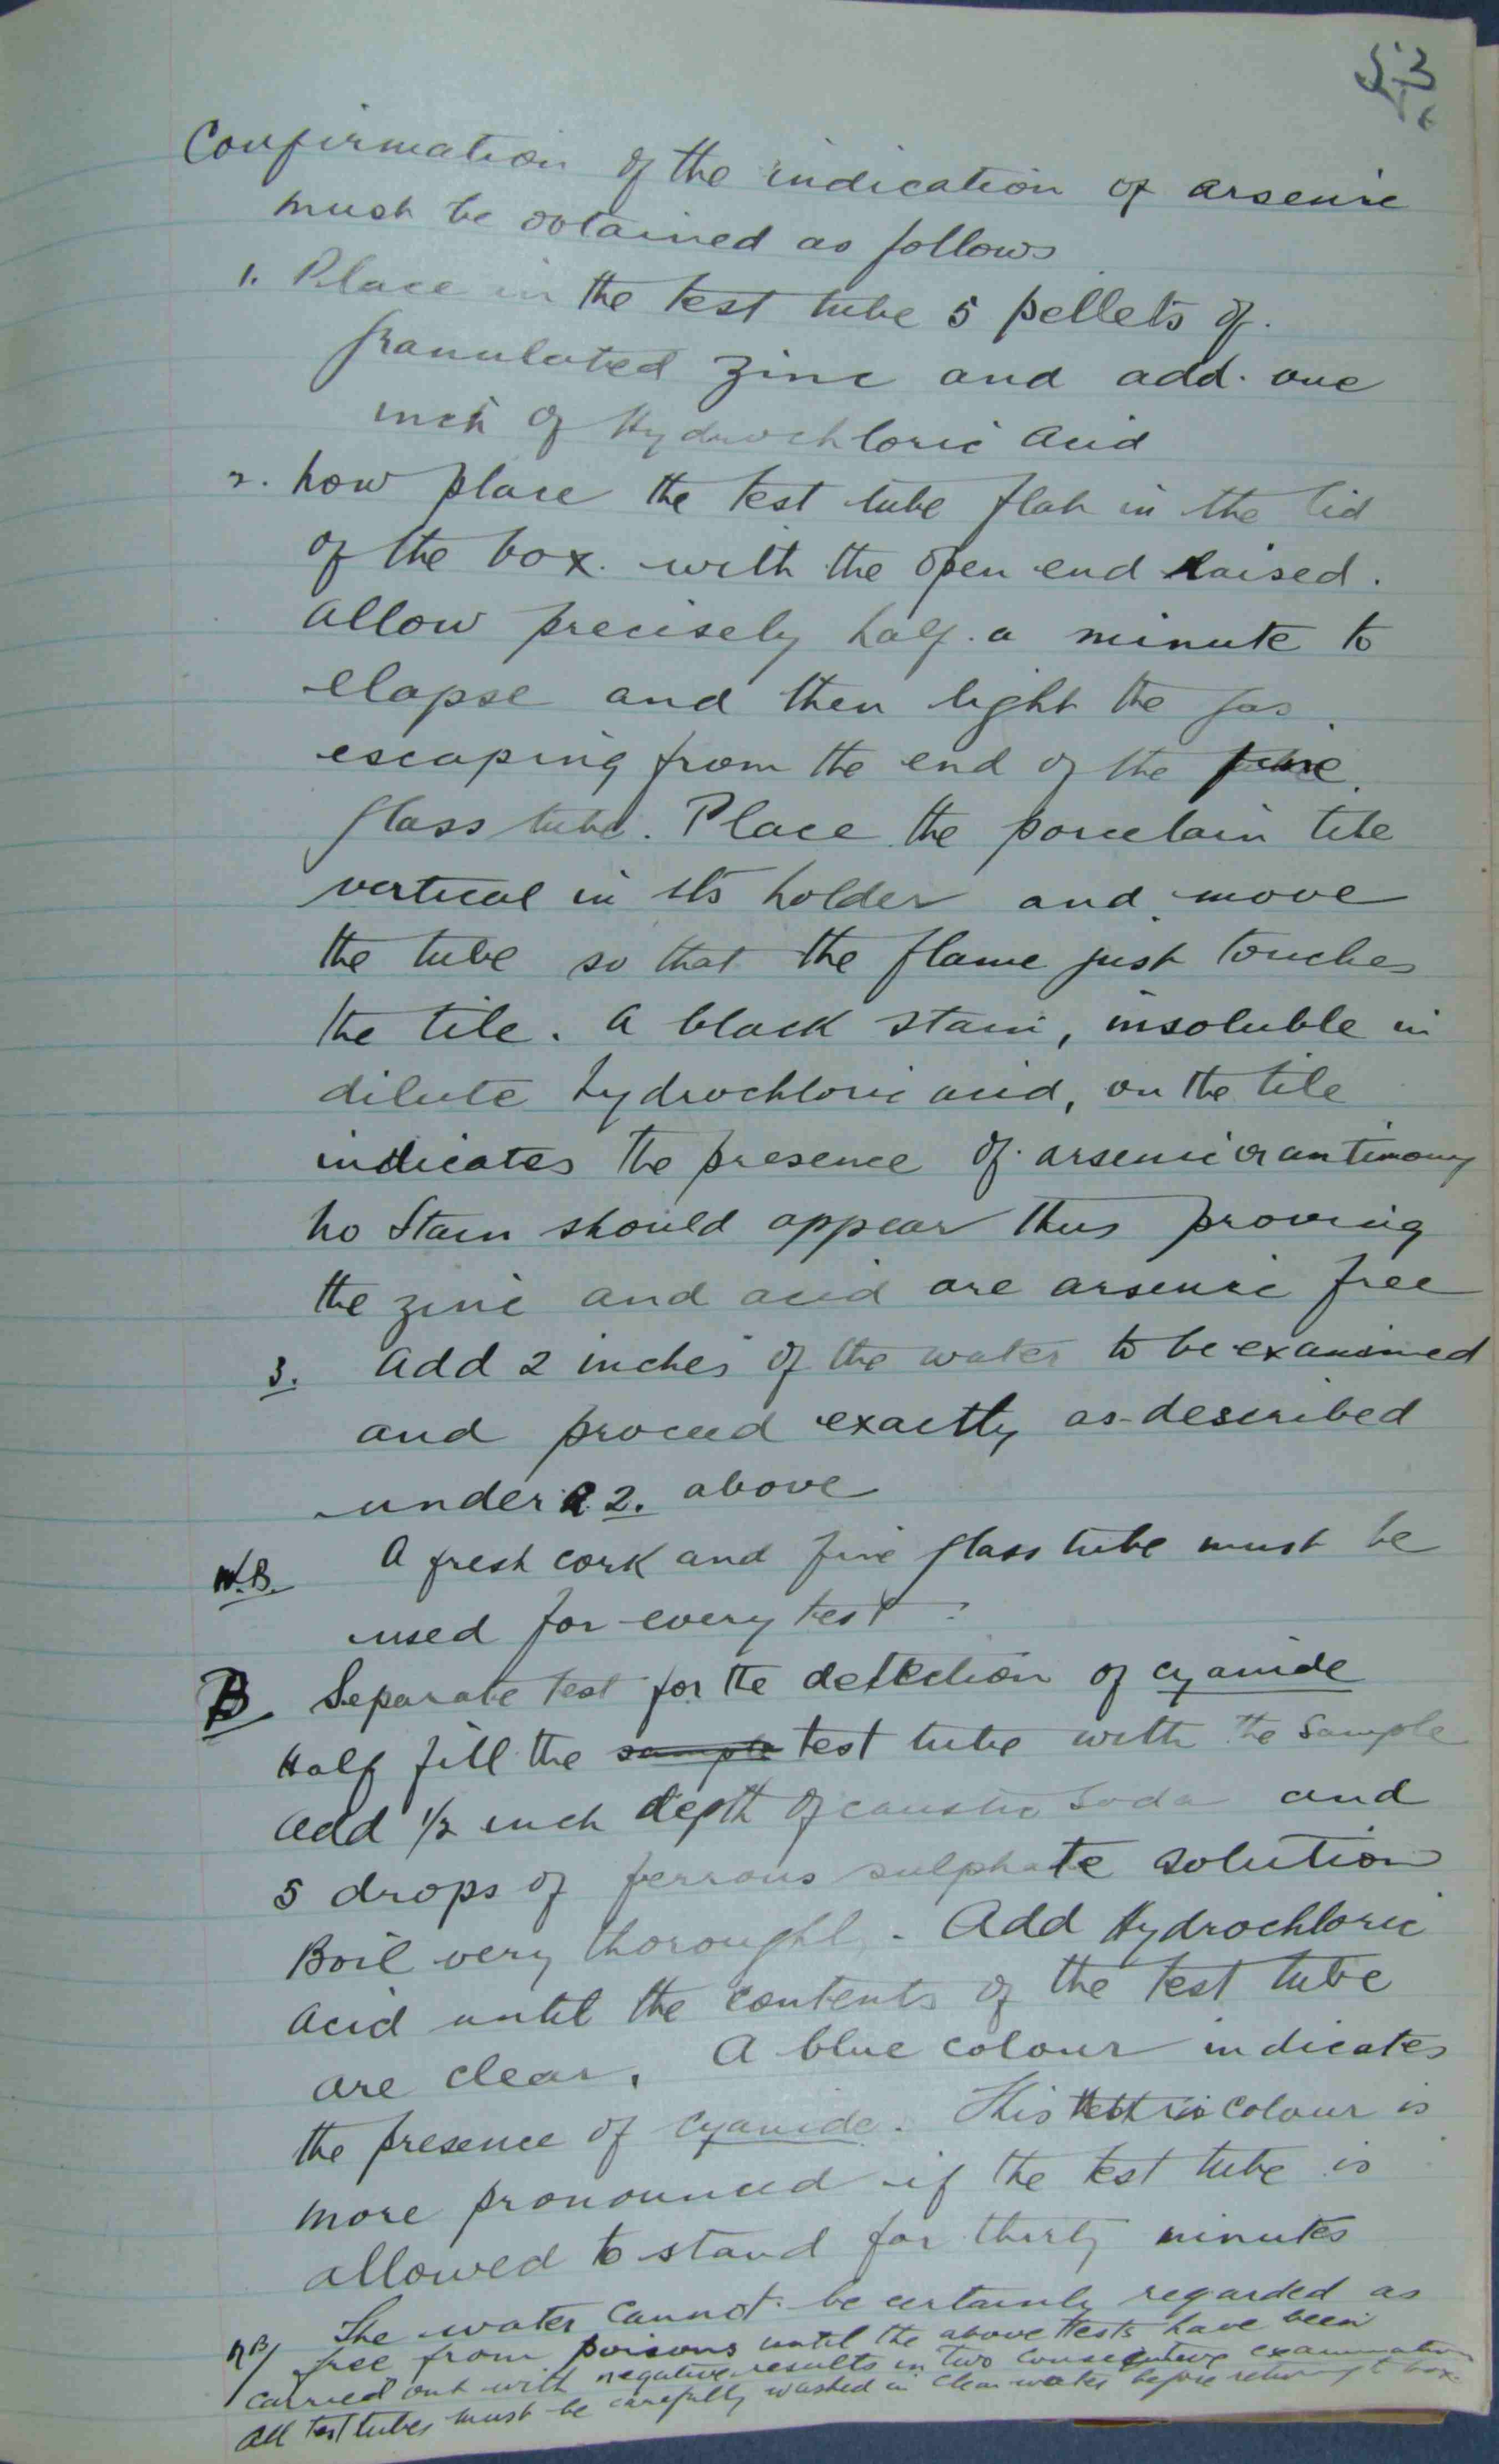 53
Confirmation of the indication of arsenic
must be obtained as follows
1. Place in the test tube 5 pellets of
granulated zinc and add. one
inch of Hydrochloric Acid
2. Now place the test tube flat in the lid
of the box. with the open end raised.
Allow precisely half a minute to
elapse and then light the gas
escaping from the end of the fine
glass tube. Place the porcelain tile
vertical in its holder and move
the tube so that the flame just touches
the tile. A black stain, insoluble in
dilute hydrochloric acid, on the tile
indicates the presence of arsenic or antimony
No Stain should appear thus proving
the zinc and acid are arsenic free
3. Add 2 inches of the water to be examined
and proceed exactly as described
under 2. above
N.B. A fresh cork and fine glass tube must be
used for every test.
B Separate test for the detection of cyanide
Half fill the sample test tube with the sample
Add 1/2 inch depth of caustic soda and
5 drops of ferrous sulphate solution
Boil very thoroughly. Add Hydrochloric
Acid until the contents of the test tube
are clear. A blue colour indicates
the presence of cyanide. This colour is
more pronounced if the test tube is
allowed to stand for thirty minutes
NB/ The water cannot be certainly regarded as
free from poisons until the above tests have been
carried out with negative results in two consecutive examination
All test tubes must be carefully washed in clean water before returning to box.